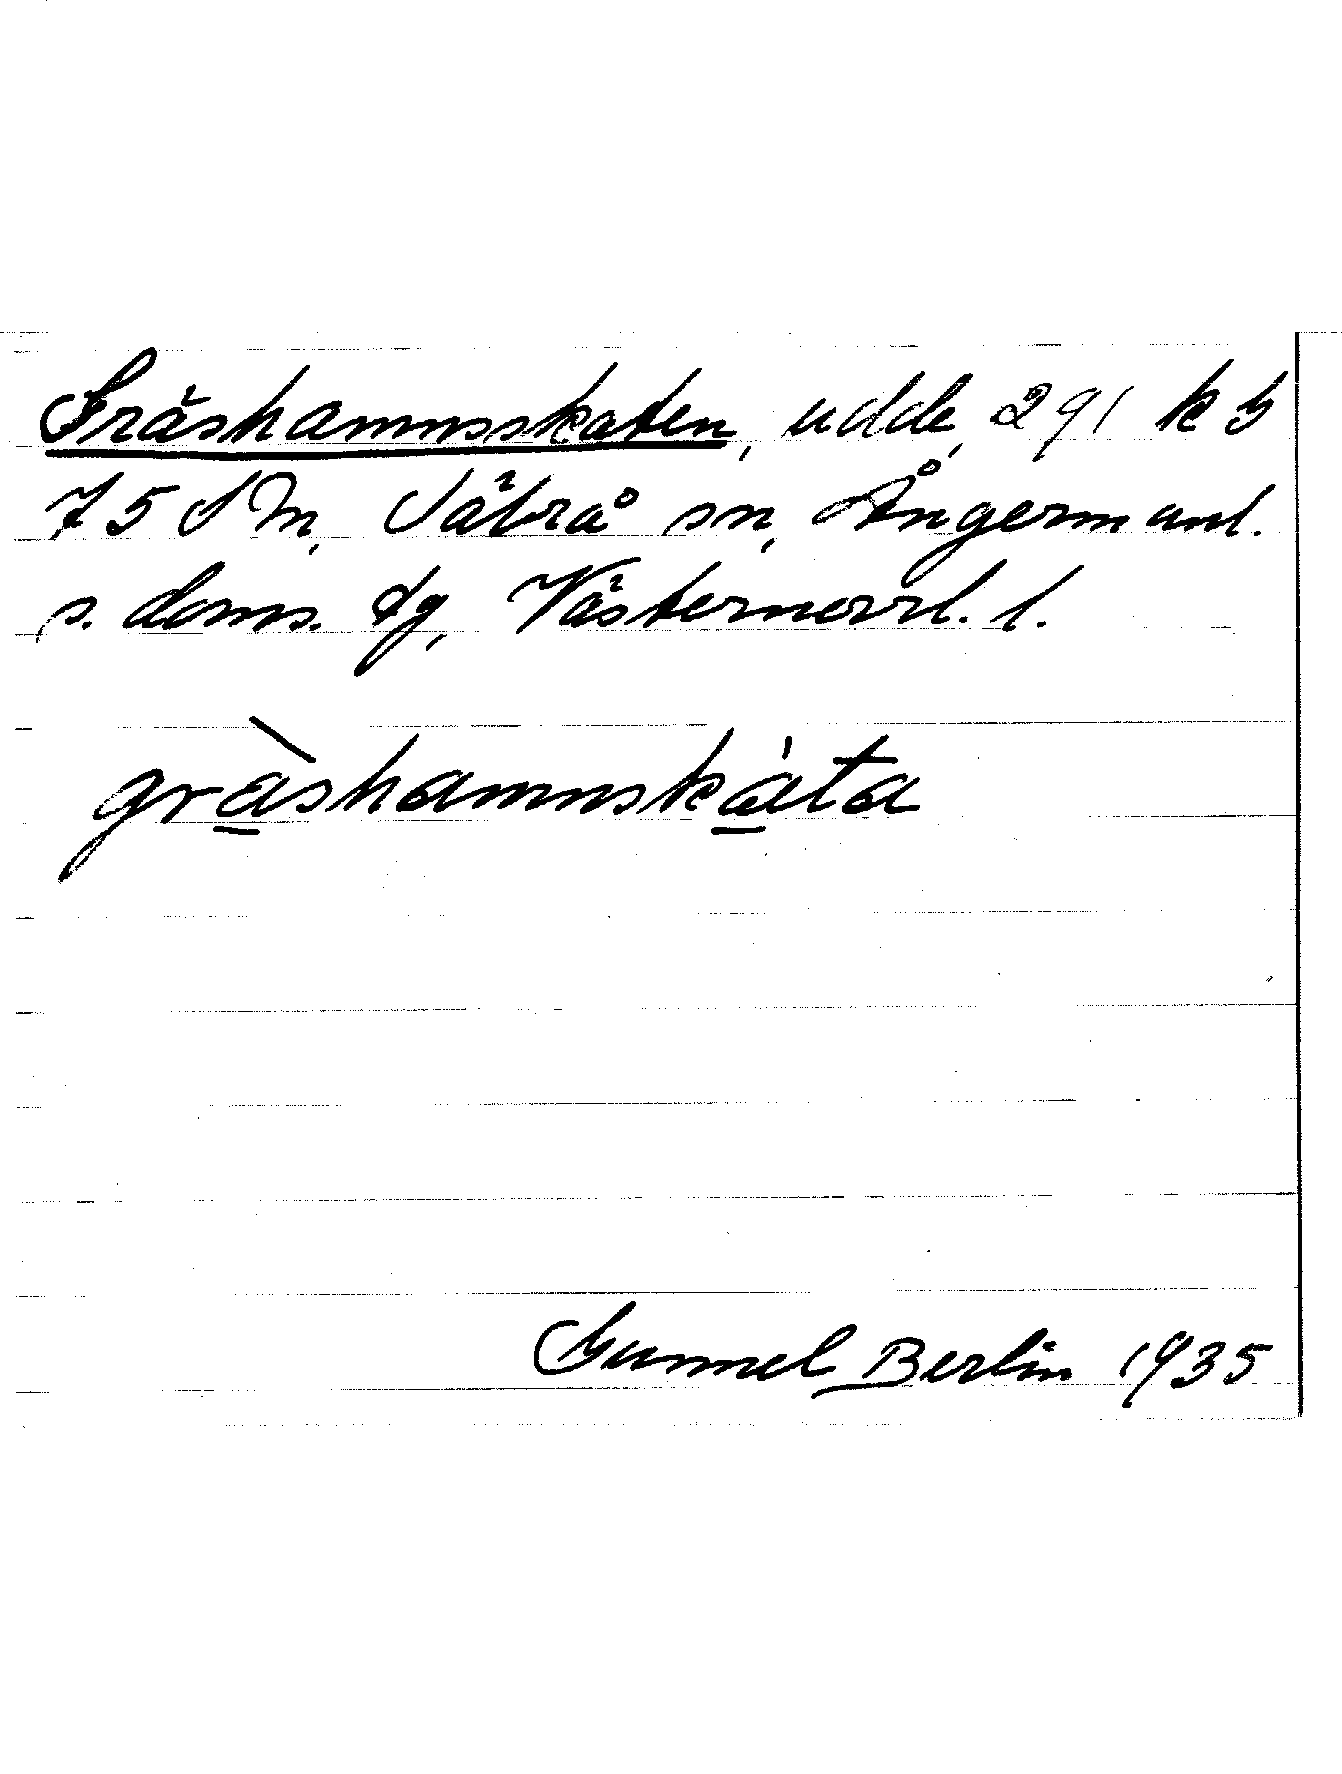 Gräshamnsskaten, udde, 291 k b
75 S M, Säbrå sn, Ångermanl.
s. doms. dg, Västernorrl. l.
gràshamnskáta
Gunnel Berlin 1935